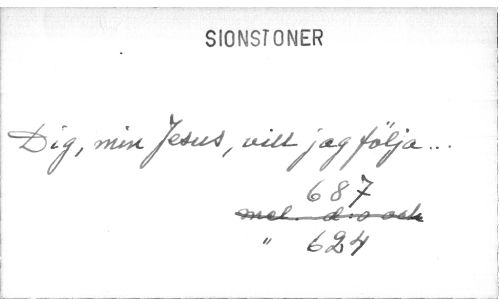 SIONSTONER
Dig, min Jesus, vill jag följa...
687
mel. d:o och
" 624